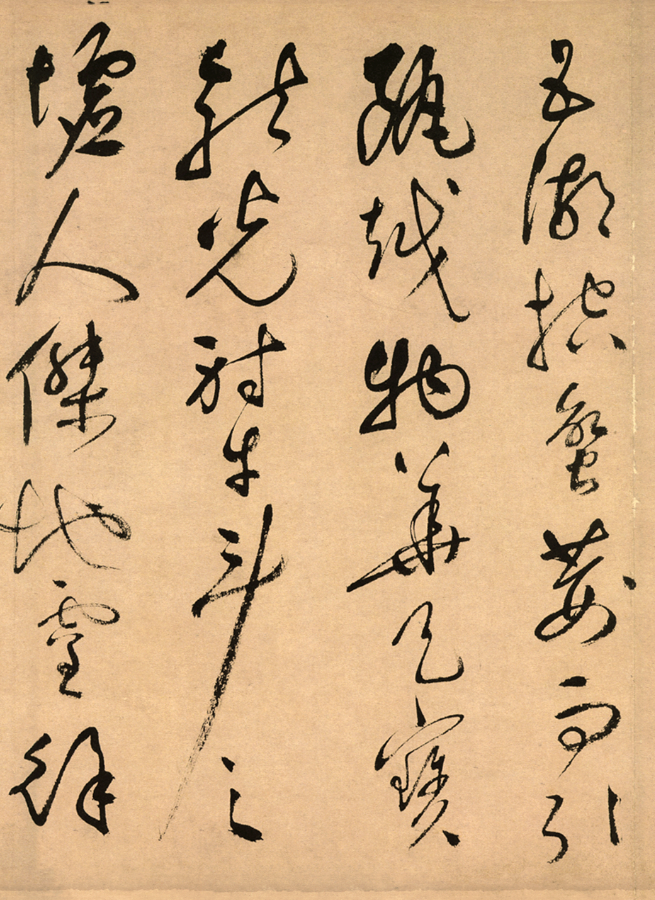 五湖控蠻荊而引
甌越物華天寶
龍光射牛斗之
墟人傑地靈徐